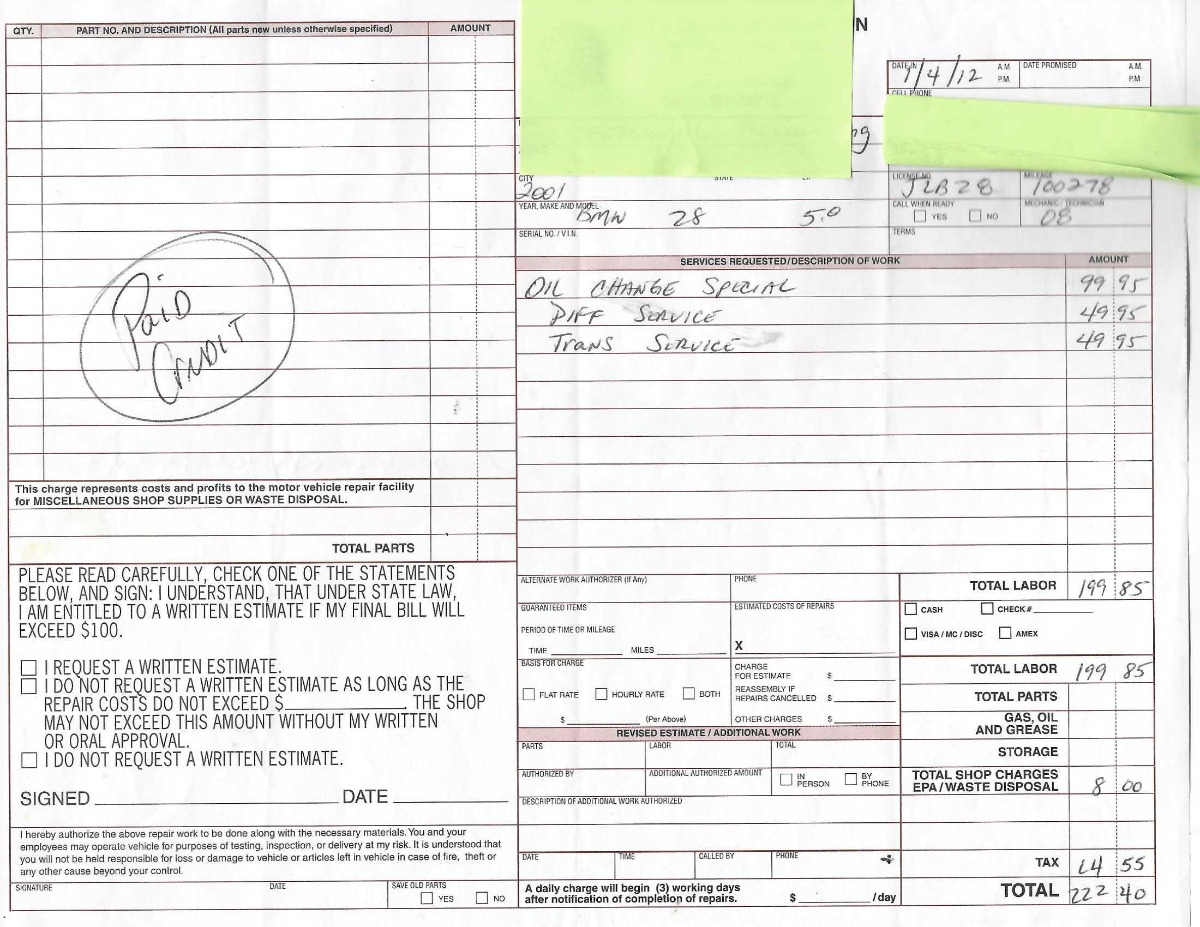 QTY. PART NO. AND DESCRIPTION (All parts new unless otherwise specified) AMOUNT
PAID
CREDIT
This charge represents costs and profits to the motor vehicle repair facility
for MISCELLANEOUS SHOP SUPPLIES OR WASTE DISPOSAL.
TOTAL PARTS
PLEASE READ CAREFULLY, CHECK ONE OF THE STATEMENTS
BELOW, AND SIGN: I UNDERSTAND, THAT UNDER STATE LAW,
I AM ENTITLED TO A WRITTEN ESTIMATE IF MY FINAL BILL WILL
EXCEED $100.
I REQUEST A WRITTEN ESTIMATE.
I DO NOT REQUEST A WRITTEN ESTIMATE AS LONG AS THE
REPAIR COSTS DO NOT EXCEED $ . THE SHOP
MAY NOT EXCEED THIS AMOUNT WITHOUT MY WRITTEN
OR ORAL APPROVAL.
I DO NOT REQUEST A WRITTEN ESTIMATE.
SIGNED DATE
I hereby authorize the above repair work to be done along with the necessary materials. You and your
employees may operate vehicle for purposes of testing, inspection, or delivery at my risk. It is understood that
you will not be held responsible for loss or damage to vehicle or articles left in vehicle in case of fire, theft or
any other cause beyond your control.
SIGNATURE DATE SAVE OLD PARTS
YES NO
N
DATE IN A.M. P.M. DATE PROMISED A.M. P.M.
/4/12
CELL PHONE
CITY STATE
2001
LICENSE NO. MILEAGE
JLB28 100278
YEAR, MAKE AND MODEL
BMW 28 5.0
CALL WHEN READY MECHANIC / TECHNICIAN
YES NO 08
SERIAL NO. / V.I.N. TERMS
SERVICES REQUESTED/DESCRIPTION OF WORK AMOUNT
OIL CHANGE SPECIAL 99 95
DIFF SERVICE 49 95
TRANS SERVICE 49 95
ALTERNATE WORK AUTHORIZER (If Any) PHONE
TOTAL LABOR 199 85
GUARANTEED ITEMS ESTIMATED COSTS OF REPAIRS
CASH CHECK #
PERIOD OF TIME OR MILEAGE
VISA / MC / DISC AMEX
TIME MILES X
BASIS FOR CHARGE
FLAT RATE HOURLY RATE BOTH
$ (Per Above)
CHARGE
FOR ESTIMATE $
REASSEMBLY IF
REPAIRS CANCELLED $
OTHER CHARGES $
TOTAL LABOR 199 85
TOTAL PARTS
GAS, OIL
AND GREASE
STORAGE
TOTAL SHOP CHARGES
EPA/WASTE DISPOSAL 8 00
REVISED ESTIMATE / ADDITIONAL WORK
PARTS LABOR TOTAL
AUTHORIZED BY ADDITIONAL AUTHORIZED AMOUNT IN PERSON BY PHONE
DESCRIPTION OF ADDITIONAL WORK AUTHORIZED
DATE TIME CALLED BY PHONE
TAX 14 55
A daily charge will begin (3) working days
after notification of completion of repairs. $ /day
TOTAL 222 40